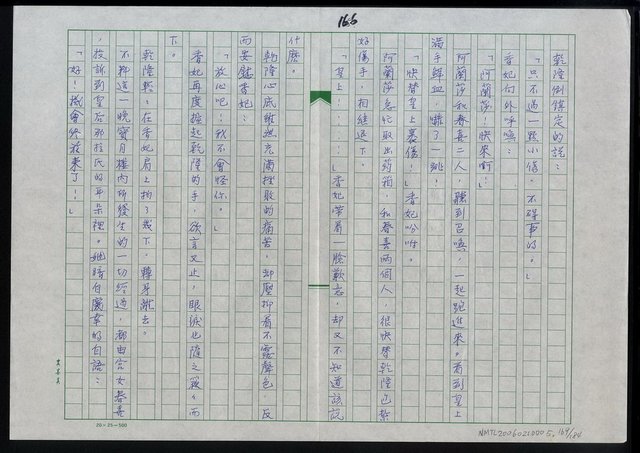 166
乾隆倒鎮定的說：
「只不過一點小傷，不碍事的。」
香妃向外呼喚：
「阿蘭莎！快來啊！」
阿蘭莎和春喜二人，聽到召喚，一起跑進來。看到皇上
滿手鮮血，嚇了一跳。
「快替皇上裹傷！」香妃吩咐。
阿蘭莎急忙取出药箱，和春喜兩個人，很快替乾隆包紮
好傷手，相繼退下。
「皇上！……」香妃帶着一臉歉忿，却又不知道該說
什麼。
乾隆心底雖然充滿挫敗的痛苦，却壓抑着不露聲色，反
而安慰香妃：
「放心吧！我不會怪你。」
香妃再度捧起乾隆的手，欲言又止，眼淚也隨之簌〻而
下。
乾隆輕〻在香妃肩上拍了幾下，轉身離去。
不料這一晚寶月樓內所發生的一切經過，都由宮女春喜
，投訴到皇后那拉氏的耳朵裡。她暗自厲笨的自語：
「好！機會終於來了！」
20×25=500
NMTL20060210005, 169/184